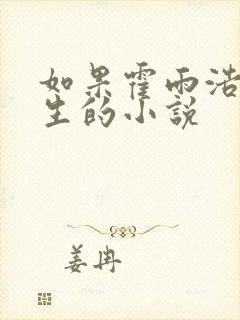 如果霍雨浩
生的小说
姜冉